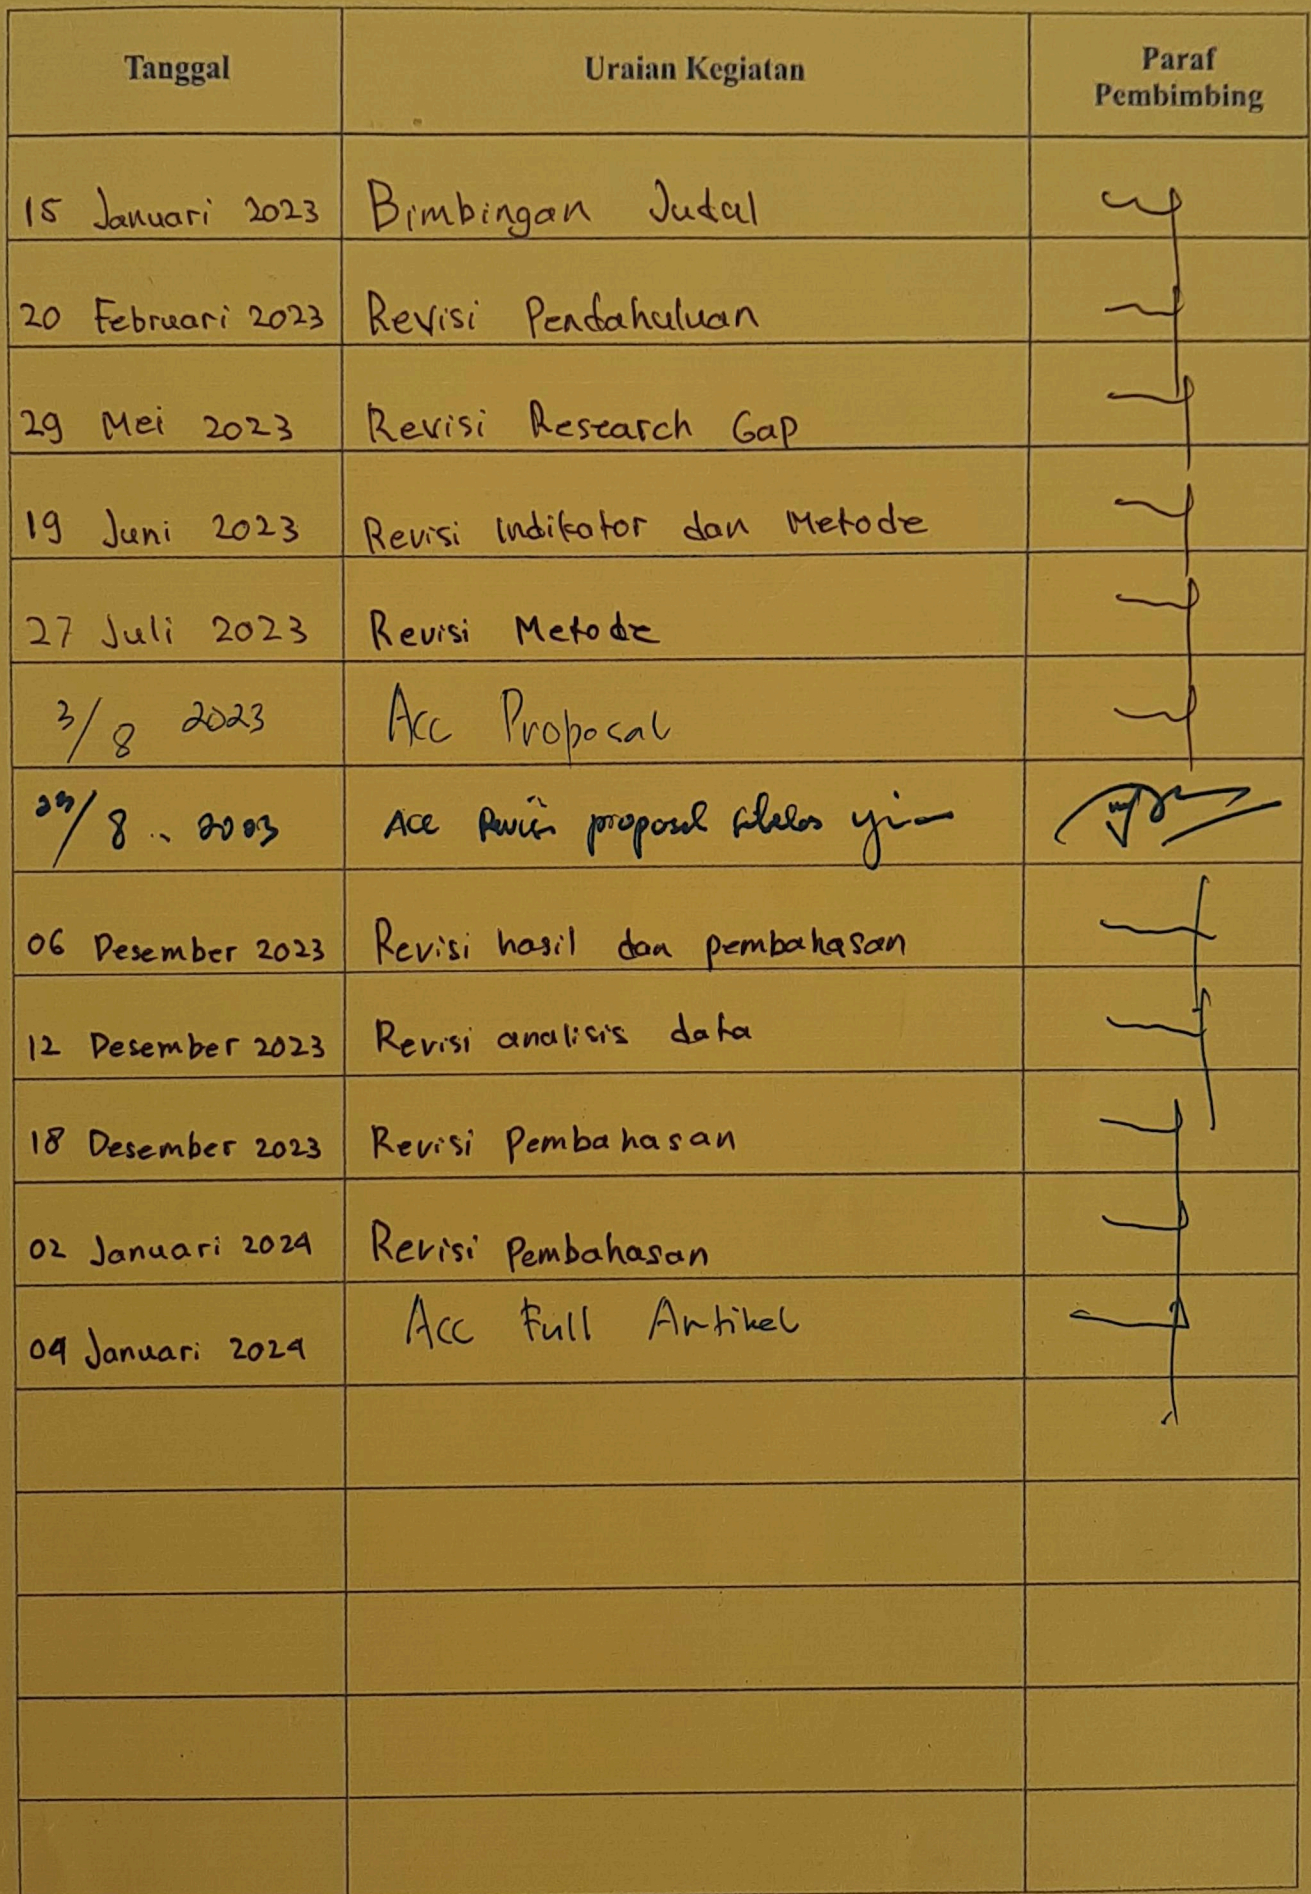 Tanggal Uraian Kegiatan Paraf Pembimbing
15 Januari 2023 Bimbingan Judul
20 Februari 2023 Revisi Pendahuluan
29 Mei 2023 Revisi Research Gap
19 Juni 2023 Revisi Indikator dan Metode
27 Juli 2023 Revisi Metode
3/8 2023 Acc Proposal
/8 Acc Revisi proposal
06 Desember 2023 Revisi hasil dan pembahasan
12 Desember 2023 Revisi analisis data
18 Desember 2023 Revisi Pembahasan
02 Januari 2024 Revisi Pembahasan
04 Januari 2024 Acc Full Artikel